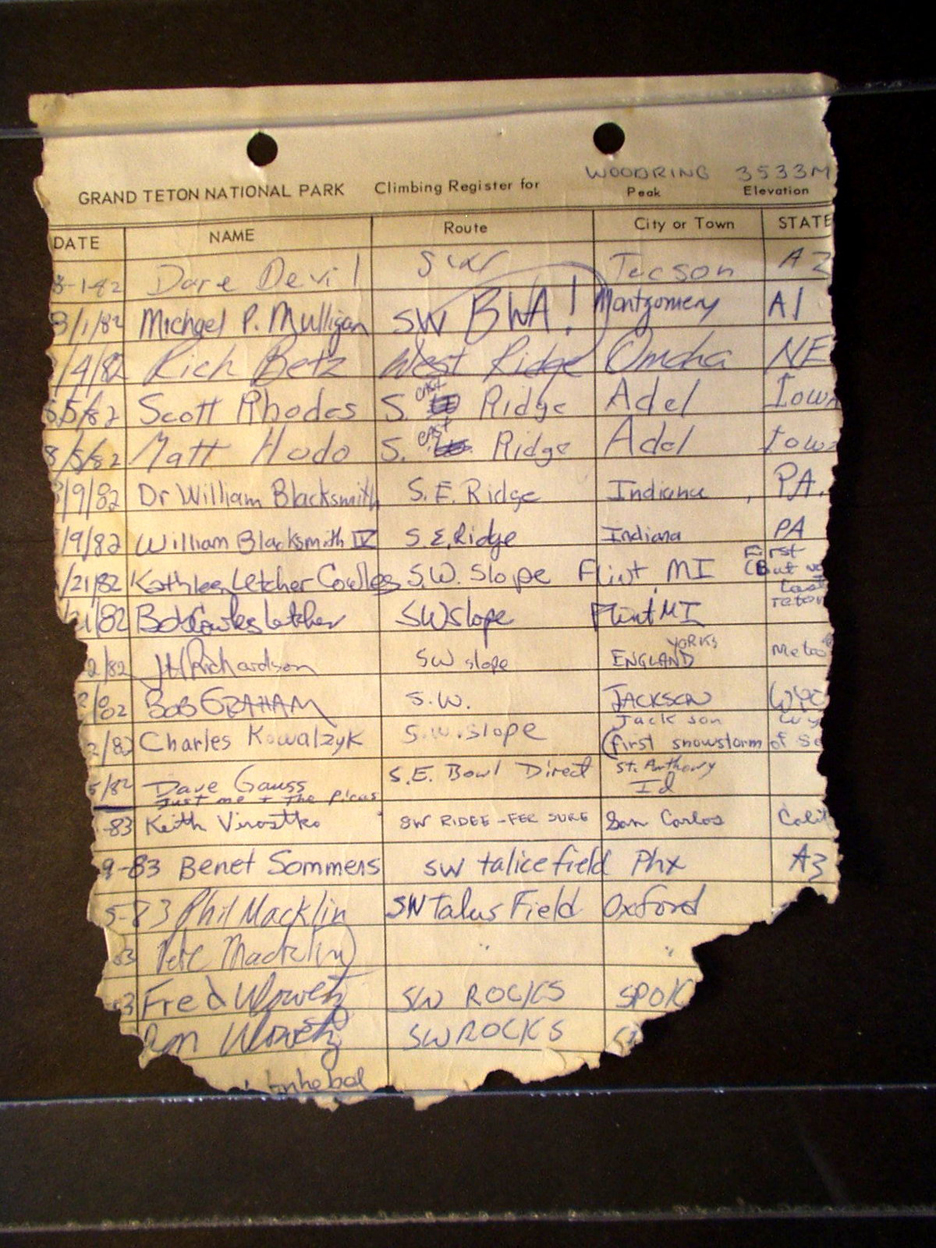 WOODRING 3533M
GRAND TETON NATIONAL PARK Climbing Register for Peak Elevation
DATE NAME Route City or Town STATE
8-1-82 Dare Devil SW Tucson AZ
8/1/82 Michael P. Mulligan SW BWA! Montgomery Al
/4/82 Rich Betz West Ridge Omaha NE
8/5/82 Scott Rhodes S. east Ridge Adel Iowa
8/5/82 Matt Hodo S. east Ridge Adel Iowa
/9/82 Dr William Blacksmith S. E. Ridge Indiana, PA.
/9/82 William Blacksmith IV S.E. Ridge Indiana PA
/21/82 Kathleen Letcher Cowles S.W. Slope Flint MI First (But not last Teton
/21/82 Bob Cowles Letcher SW Slope Flint MI
2/82 JH Richardson SW slope YORKS ENGLAND
/82 BOB GRAHAM S.W. JACKSON WYO
2/82 Charles Kowalzyk S.W. Slope Jackson Wy (first snowstorm of
5/82 Dave Gauss S.E. Bowl Direct St. Anthony Id
Just me + the picas
-83 Keith Virostko SW RIDEE - FER SURE San Carlos Calif
9-83 Benet Sommers SW talice field Phx AZ
5-83 Phil Macklin SW Talus Field Oxford
83 Pete Macklin " "
3 Fred Wowetz SW ROCKS SPOK
Wowetz SW ROCKS